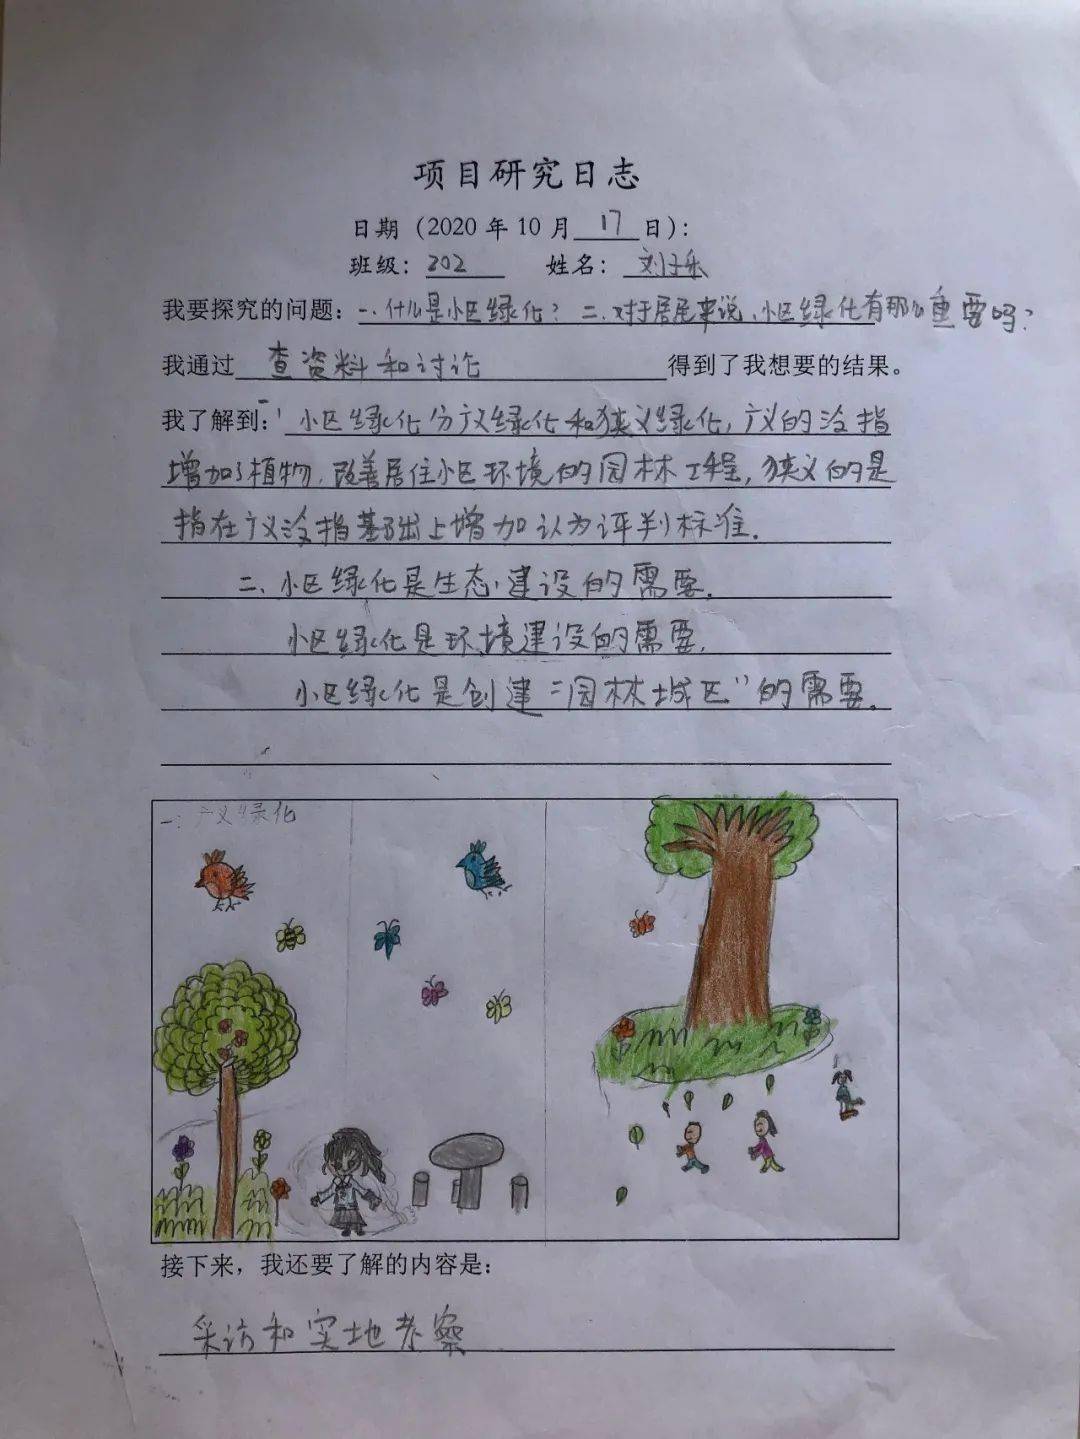 项目研究日志
日期（2020 年 10 月 17 日）：
班级：202 姓名：刘子乐
我要探究的问题：一、什么是小区绿化？二、对于居民来说，小区绿化有那么重要吗？
我通过 查资料和讨论 得到了我想要的结果。
我了解到：一、小区绿化分广义绿化和狭义绿化，广义的泛指
增加了植物，改善居住小区环境的园林工程，狭义的是
指在广义泛指基础上增加认为评判标准。
二、小区绿化是生态建设的需要。
小区绿化是环境建设的需要。
小区绿化是创建“园林城区”的需要。
一：广义绿化
接下来，我还要了解的内容是：
采访和实地考察